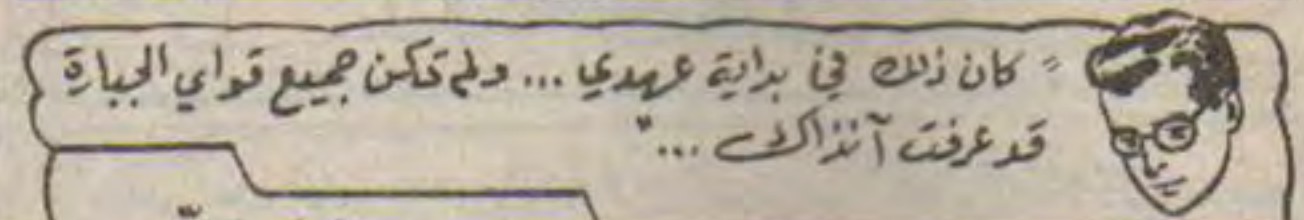 " كان ذلك في بداية عهدي ... ولم تكن جميع قواي الجبارة
قد عرفت آنذاك ... "